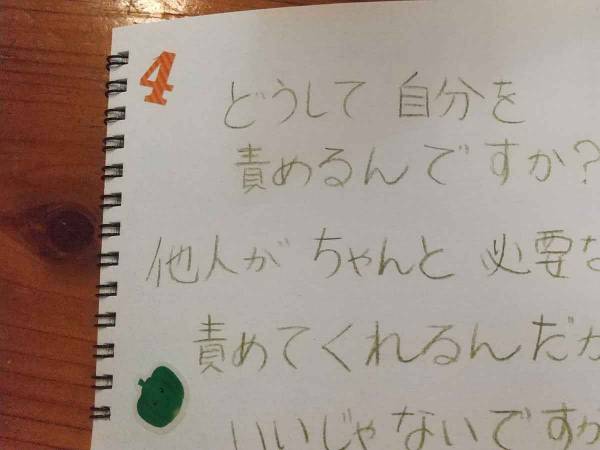 4
どうして 自分を
責めるんですか?
他人が ちゃんと 必要な
責めてくれるんだか
いいじゃないですか